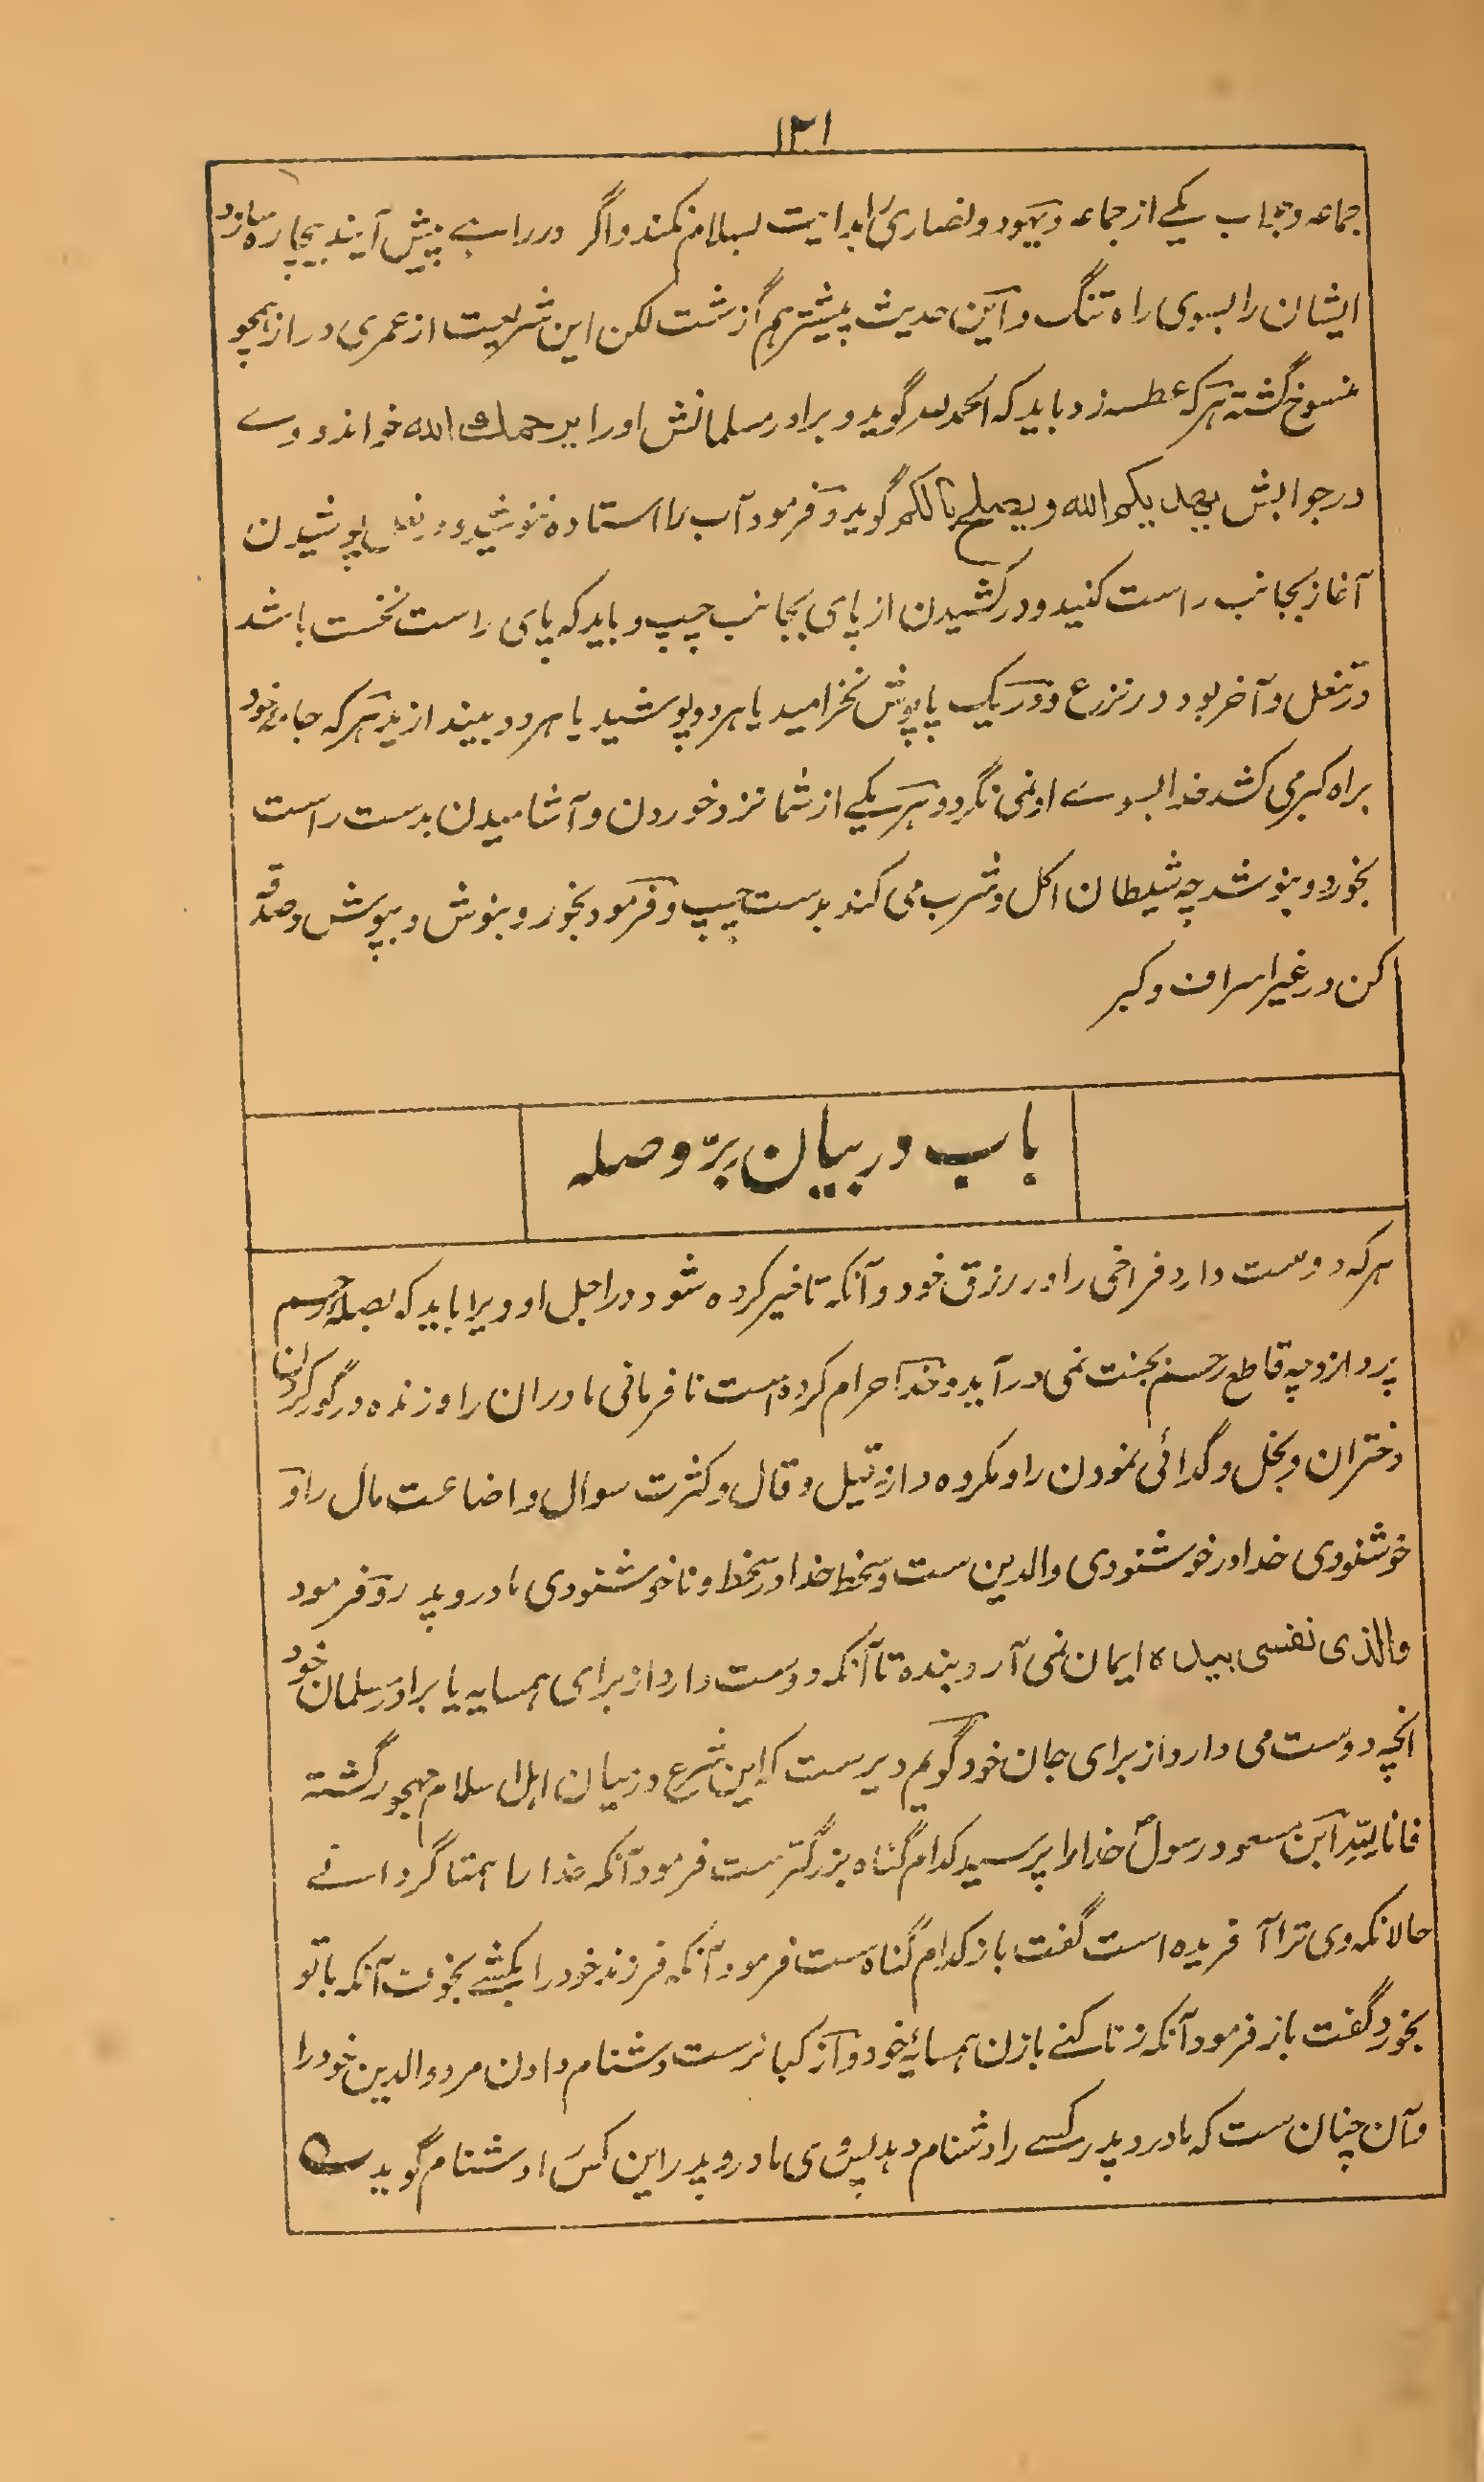 ۱۲۱
جماعه وجواب یکے از جماعه ویهود ونصاری را بدایت بسلام نکند واگر در راہے پیش آیند بیچاره سازد
ایشان را بسوی راه تنگ واین حدیث پیشتر هم گزشت لکن این شریعت از عمری دراز همچو
منسوخ گشته هرکه عطسه زد باید که الحمد لله گوید و برادر مسلمانش او را یرحمك الله خواند ووے
در جوابش یهدیکم الله ویصلح بالکم گوید وفرمود آب را استاده ننوشید ودر نعل پوشیدن
آغاز بجانب راست کنید ودر کشیدن از پای بجانب چپ وباید که پای راست نخست باشد
در تنعل وآخر بود در نزع ودر یک پاپوش نخرامید یا هر دو پوشید یا هر دو بیندازید هرکه جامهٔ خود
براه کبر می کشد خدا بسوے او نمی نگرد وهر یکے از شما نزد خوردن وآشامیدن بدست راست
بخورد وبنوشد چه شیطان اکل وشرب می کند بدست چپ وفرمود بخور وبنوش وبپوش وصدقه
کن در غیر اسراف وکبر
باب در بیان برّ وصله
هرکه دوست دارد فراخی را در رزق خود وآنکه تاخیر کرده شود در اجل او ویرا باید که بصلهٔ رحم
پردازد چه قاطع رحم بجنت نمی درآید وخدا حرام کرده است نافرمانی مادران را وزنده در گور کردن
دختران وبخل وگدائی نمودن را ومکروه دارد قیل وقال وکثرت سوال واضاعت مال را و
خوشنودی خدا در خوشنودی والدین ست وسخط خدا در سخط وناخوشنودی مادر وپدر وفرمود
والذی نفسی بیده ایمان نمی آرد بنده تا آنکه دوست دارد از برای همسایه یا برادر مسلمان خود
انچه دوست می دارد از برای جان خود گویم دیرست که این شرع در میان اهل اسلام مهجور گشته
فانا لله ابن مسعود رسولؐ خدا را پرسید کدام گناه بزرگترست فرمود آنکه خدا را همتا گردانے
حالانکه وی ترا آفریده است گفت باز کدام گناه ست فرمود آنکه فرزند خود را بکشے بخوف آنکه با تو
بخورد گفت باز فرمود آنکه زنا کنے با زن همسایهٔ خود واز کبائرست دشنام دادن مرد والدین خود را
وآن چنان ست که مادر وپدر کسے را دشنام دهد پس وی مادر وپدر این کس را دشنام گوید